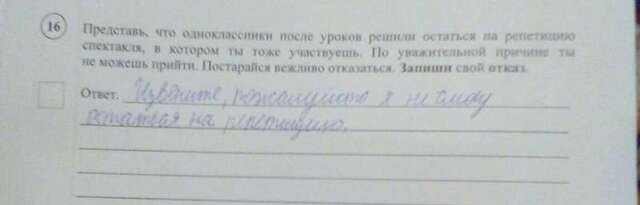 16
Представь, что одноклассники после уроков решили остаться на репетицию
спектакля, в котором ты тоже участвуешь. По уважительной причине ты
не можешь прийти. Постарайся вежливо отказаться. Запиши свой отказ.
Ответ. Извените, пожалуйста я не смогу
остатся на репетицию.